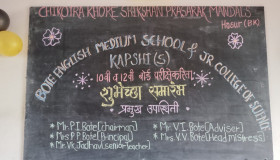 CHIKOTRA KHORE SHIKSHAN PRASARAK MANDAL'S
BOTE ENGLISH MEDIUM SCHOOL & JR. COLLEGE OF SCIENCE
KAPSHI(S)
10वी व 12वी बोर्ड परीक्षेकरिता
शुभेच्छा समारंभ
प्रमुख उपस्थिती
* Mr. P.I. Bote (chairman)
* Mr. V.I. Bote (Adviser)
* Mrs P P Bote (Principal)
* Mrs. V.V. Bote (Head mistress)
* Mr. V.K. Jadhav (senior teacher)